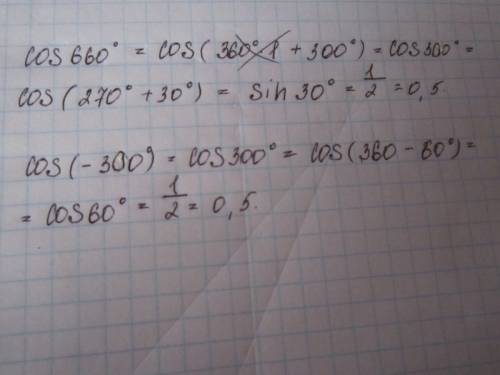 cos 660° = cos(360°·1 + 300°) = cos 300° =
cos(270° + 30°) = sin 30° = 1/2 = 0,5.
cos(-300°) = cos 300° = cos(360 - 60°) =
= cos 60° = 1/2 = 0,5.